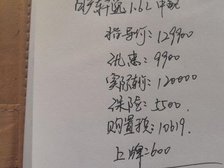 1.6L 中配
指导价:129900
优惠:9900
实际价:120000
保险:5500
购置税:10619.
上牌:600